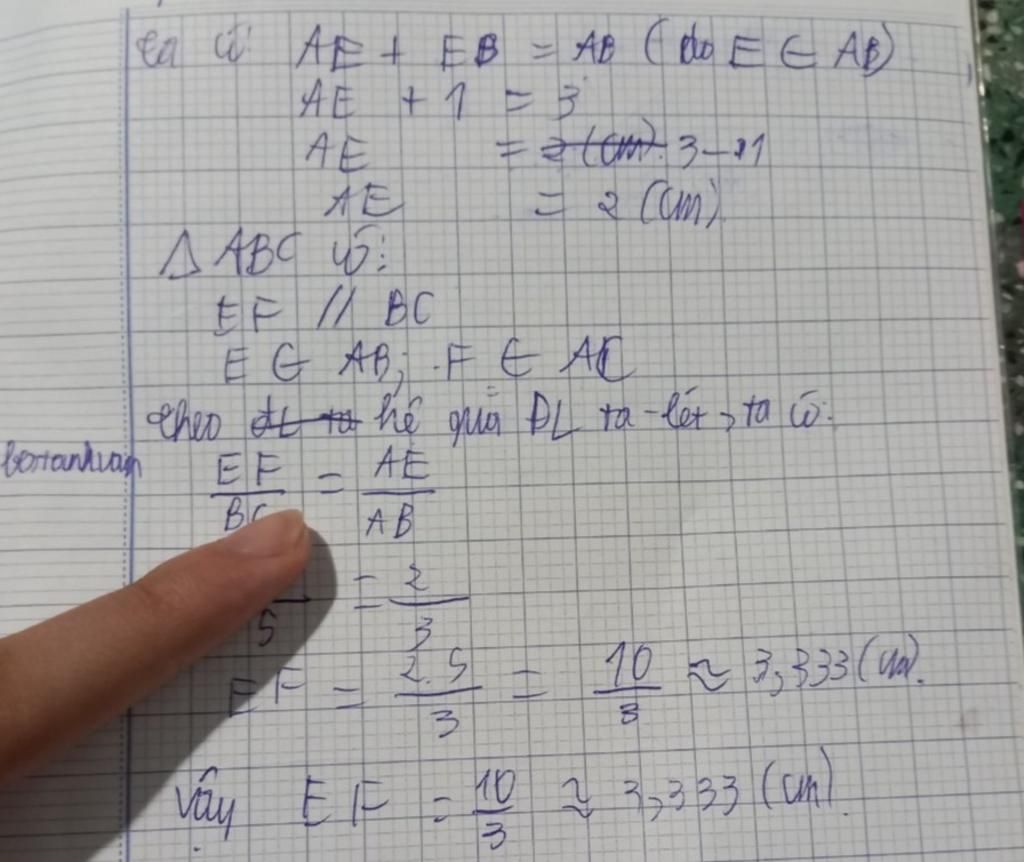 Ta có: AE + EB = AB (do E ∈ AB)
AE + 1 = 3
AE = 2 (cm) 3 - 1
AE = 2 (cm)
Δ ABC có:
EF // BC
E ∈ AB; F ∈ AC
theo ĐL ta hệ quả ĐL ta-lét, ta có:
EF/BC = AE/AB
/5 = 2/3
EF = 2.5/3 = 10/3 ≈ 3,333 (cm).
Vậy EF = 10/3 ≈ 3,333 (cm)